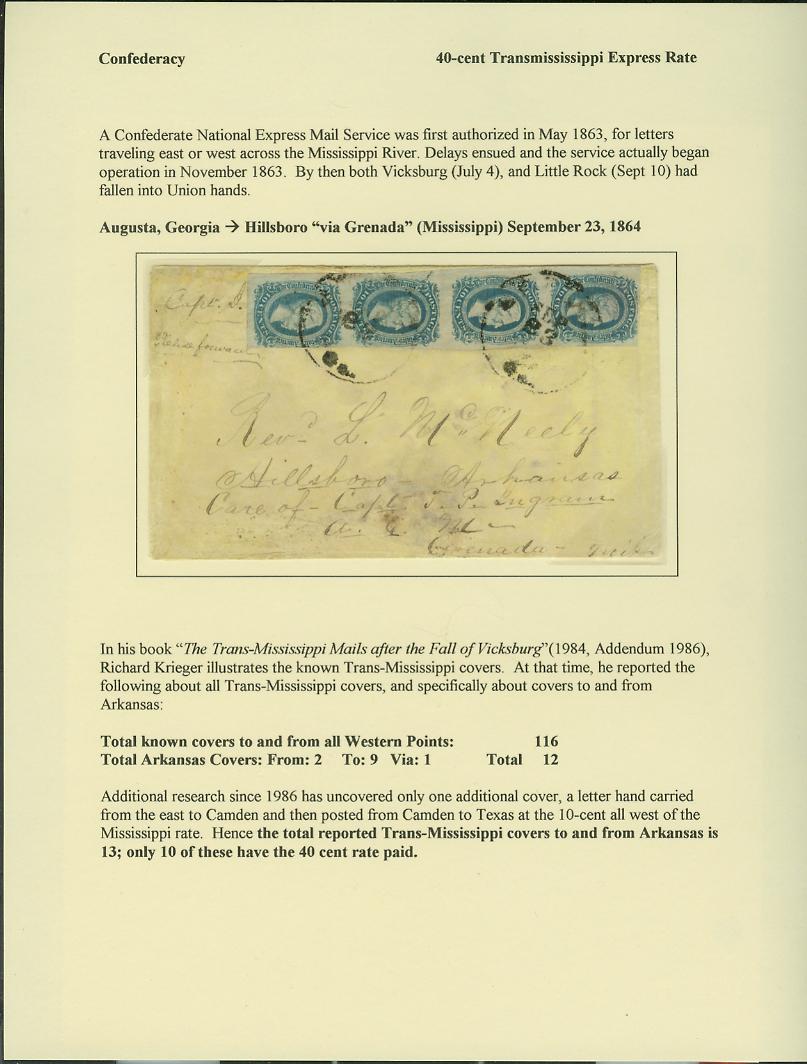 Confederacy 40-cent Transmississippi Express Rate
A Confederate National Express Mail Service was first authorized in May 1863, for letters
traveling east or west across the Mississippi River. Delays ensued and the service actually began
operation in November 1863. By then both Vicksburg (July 4), and Little Rock (Sept 10) had
fallen into Union hands.
Augusta, Georgia → Hillsboro “via Grenada” (Mississippi) September 23, 1864
Capt. I.
Please forward
23
Ga.
Rev.d L. McNeely
Hillsboro - Arkansas
Care of - Capt T. P. Ingram
A. Q. M -
Grenada -
In his book “The Trans-Mississippi Mails after the Fall of Vicksburg”(1984, Addendum 1986),
Richard Krieger illustrates the known Trans-Mississippi covers. At that time, he reported the
following about all Trans-Mississippi covers, and specifically about covers to and from
Arkansas:
Total known covers to and from all Western Points: 116
Total Arkansas Covers: From: 2 To: 9 Via: 1 Total 12
Additional research since 1986 has uncovered only one additional cover, a letter hand carried
from the east to Camden and then posted from Camden to Texas at the 10-cent all west of the
Mississippi rate. Hence the total reported Trans-Mississippi covers to and from Arkansas is
13; only 10 of these have the 40 cent rate paid.